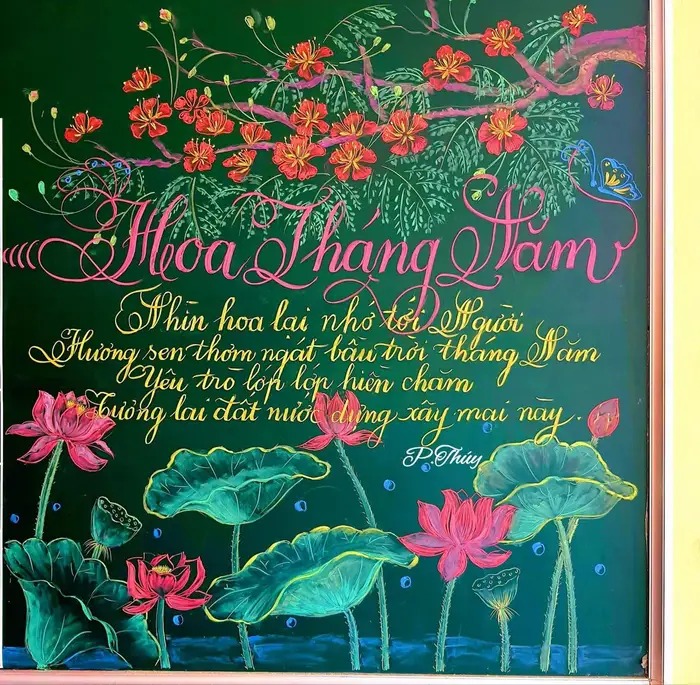 Hoa Tháng Năm
Nhìn hoa lại nhớ tới Người
Hương sen thơm ngát bầu trời tháng Năm
Yêu trò lớp lớp hiền chăm
Tương lai đất nước dựng xây mai này.
P.Thúy